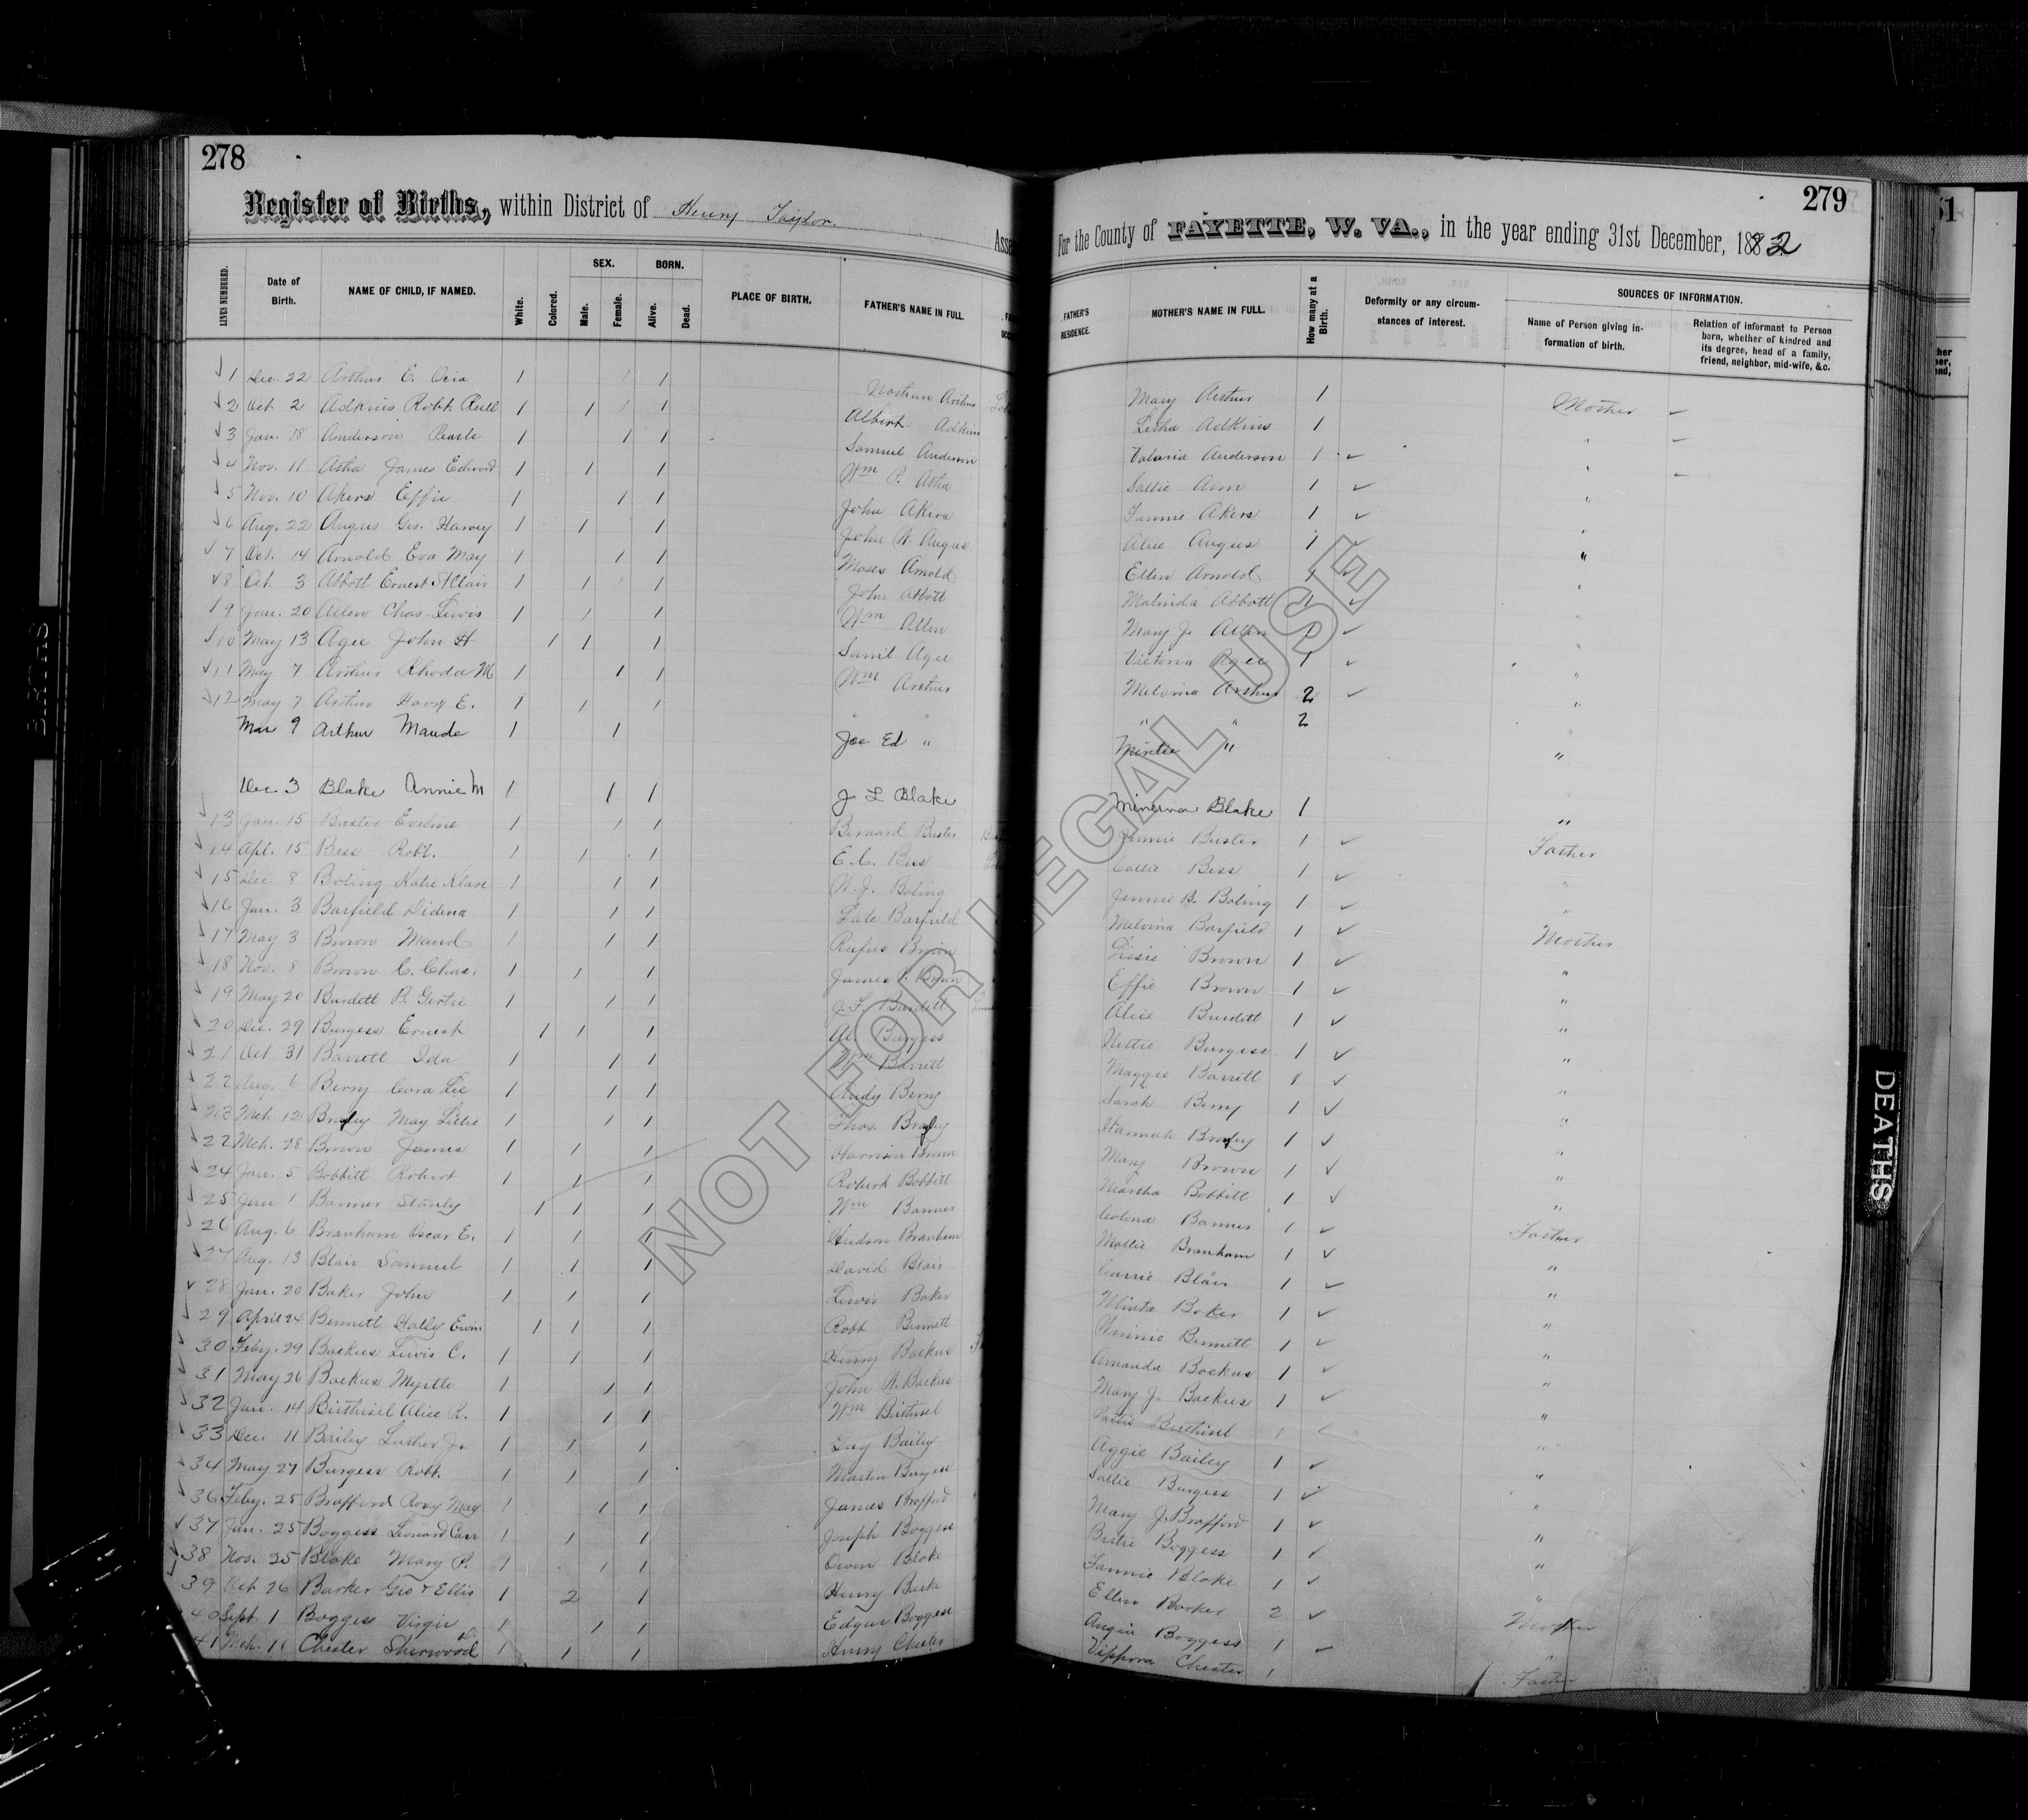 278
Register of Births, within District of Henry Taylor.
279
For the County of FAYETTE, W. VA., in the year ending 31st December, 1882
LINES NUMBERED. Date of Birth. NAME OF CHILD, IF NAMED. White. Colored. SEX. Male. Female. BORN. Alive. Dead. PLACE OF BIRTH. FATHER'S NAME IN FULL.
FATHER'S RESIDENCE. MOTHER'S NAME IN FULL. How many at a Birth. Deformity or any circumstances of interest. SOURCES OF INFORMATION. Name of Person giving information of birth. Relation of informant to Person born, whether of kindred and its degree, head of a family, friend, neighbor, mid-wife, &c.
1 Dec. 22 Arthur E. Ocia 1 1 1 Arthur Mary Arthur 1 Mother
2 Oct. 2 Adkins Robt. 1 1 1 Albert Adkins Adkins 1 "
3 Jan. 18 Anderson Pearle 1 1 1 Samuel Anderson Anderson 1 "
4 Nov. 11 James Edward 1 1 1 Wm P. Sallie Ann 1 "
5 Nov. 10 Akers Effie 1 1 1 John Akers Fannie Akers 1 "
6 Aug. 22 Angus Geo. Harvey 1 1 1 John Angus Alice Angus 1 "
7 Oct. 14 Arnold Eva May 1 1 1 Moses Arnold Ellen Arnold 1 "
8 Oct. 3 Abbott Ernest StClair 1 1 1 John Abbott Malinda Abbott 1 "
9 Jan. 20 Allen Chas. Lewis 1 1 1 Wm Allen Mary J. Allen 1 "
10 May 13 Agee John H 1 1 1 Saml Agee Victoria Agee 1 "
11 May 7 Arthur Rhoda M 1 1 1 Wm Arthur Melvina Arthur 2 "
12 May 7 Arthur Harry E. 1 1 1 " " " " 2 "
Mar 9 Arthur Maude 1 1 Joe Ed " " "
Dec. 3 Blake Annie M 1 1 1 J L Blake Minerva Blake 1 "
13 Jan. 15 Buster Eveline 1 1 1 Bernard Buster Buster 1 Father
14 Apl. 15 Bess Robt. 1 1 1 E. C. Bess Callie Bess 1 "
15 Dec. 8 Boling Katie 1 1 1 Boling Jennie B. Boling 1 "
16 Jan. 3 Barfield 1 1 1 Barfield Melvina Barfield 1 Mother
17 May 3 Brown Maud 1 1 1 Rufus Brown Brown 1 "
18 Nov. 8 Brown C. Chas. 1 1 1 James Brown Effie Brown 1 "
19 May 20 Burdett B. Gertie 1 1 1 J. F. Burdett Alice Burdett 1 "
20 Dec. 29 Burgess Ernest 1 1 1 Al Burgess Nettie Burgess 1 "
21 Oct. 31 Barrett Ida 1 1 1 Wm Barrett Maggie Barrett 1 "
22 Aug. 6 Berry Cora Lee 1 1 1 Andy Berry Sarah Berry 1 "
23 Mch. 12 May 1 1 1 Thos. Hannah 1 "
22 Mch. 28 Brown James 1 1 1 Harrison Brown Mary Brown 1 "
24 Jan. 5 Bobbitt Robert 1 1 1 Robert Bobbitt Martha Bobbitt 1 "
25 Jan 1 Banner Stanly 1 1 1 Wm Banner Banner 1 Father
26 Aug. 6 Branham Oscar E. 1 1 1 Hudson Branham Mollie Branham 1 "
27 Aug. 13 Blair Samuel 1 1 1 David Blair Carrie Blair 1 "
28 Jan. 20 Baker John 1 1 1 Lewis Baker Baker 1 "
29 April 24 Bennett 1 1 1 Robt Bennett Bennett 1 "
30 Feby. 29 Backus Lewis C. 1 1 1 Henry Backus Amanda Backus 1 "
31 May 26 Backus Myrtle 1 1 1 John Backus Mary J. Backus 1 "
32 Jan. 14 Alice R. 1 1 1 Wm 1 "
33 Dec. 11 Bailey Luther Jr. 1 1 1 Guy Bailey Aggie Bailey 1 "
34 May 27 Burgess Robt. 1 1 1 Martin Burgess Sallie Burgess 1 "
36 Feby. 25 Brafford Rosy May 1 1 1 James Brafford Mary J. Brafford 1 "
37 Jan. 25 Boggess Leonard Carr 1 1 1 Joseph Boggess Boggess 1 "
38 Nov. 25 Blake Mary P. 1 1 1 Owen Blake Fannie Blake 1 "
39 Oct. 26 Barker Geo & Ellis 1 2 1 Henry Ellen Barker 2 Mother
40 Sept. 1 Boggess 1 1 1 Edgar Boggess Boggess 1 "
41 Mch. 11 Chester Sherwood 1 1 1 Henry Chester Chester 1 Father
NOT FOR LEGAL USE
BIRTHS
DEATHS